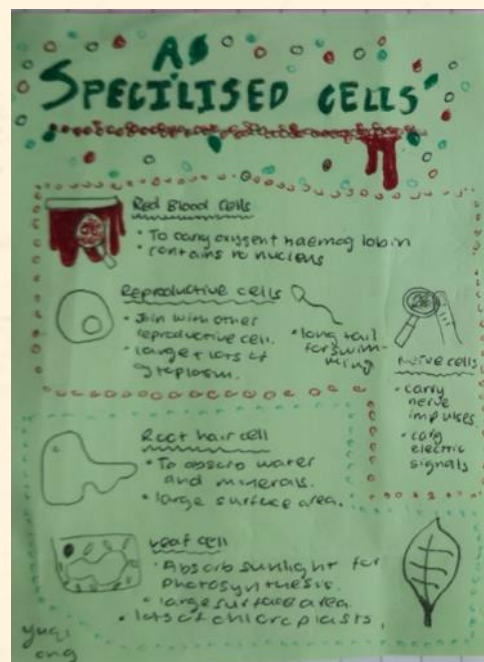 A
SPECILISED CELLS
Red Blood Cells
• To carry oxygen + haemoglobin
• contains no nucleus
Reproductive cells
• Join with other
reproductive cell.
• large + lots of
cytoplasm.
• long tail
for swim-
ming
Nerve cells
• carry
nerve
impulses
• carry
electric
signals
Root hair cell
• To absorb water
and minerals.
• large surface area.
Leaf cell
• Absorb sunlight for
photosynthesis.
• large surface area.
• lots of chloroplasts.
yuqi
ong